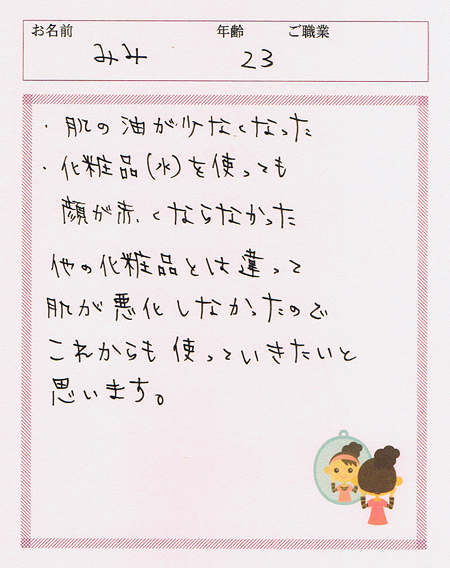 お名前 年齢 ご職業
みみ 23
・肌の油が少なくなった
・化粧品(水)を使っても
顔が赤くならなかった
他の化粧品とは違って
肌が悪化しなかったので
これからも使っていきたいと
思います。